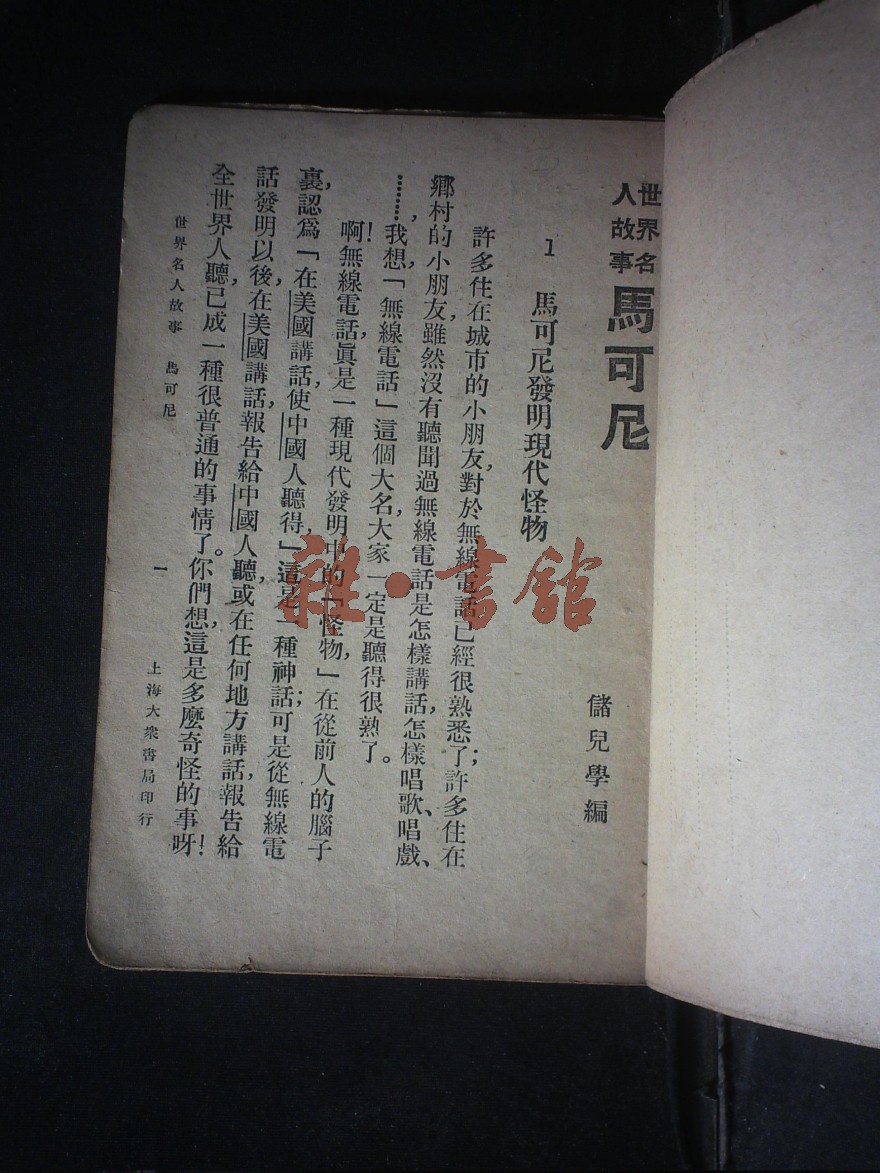 世界名
人故事
馬可尼
儲兒學編
1 馬可尼發明現代怪物
許多住在城市的小朋友,對於無線電話已經很熟悉了;許多住在
鄉村的小朋友,雖然沒有聽聞過無線電話是怎樣講話,怎樣唱歌、唱戲、
………我想,「無線電話」這個大名,大家一定是聽得很熟了。
啊!無線電話,眞是一種現代發明中的「怪物,」在從前人的腦子
裏,認爲「在美國講話,使中國人聽得,」這是一種神話;可是從無線電
話發明以後,在美國講話,報告給中國人聽,或在任何地方講話,報告給
全世界人聽,已成一種很普通的事情了。你們想,這是多麼奇怪的事呀!
世界名人故事 馬可尼
一
上海大衆書局印行
雜·書館